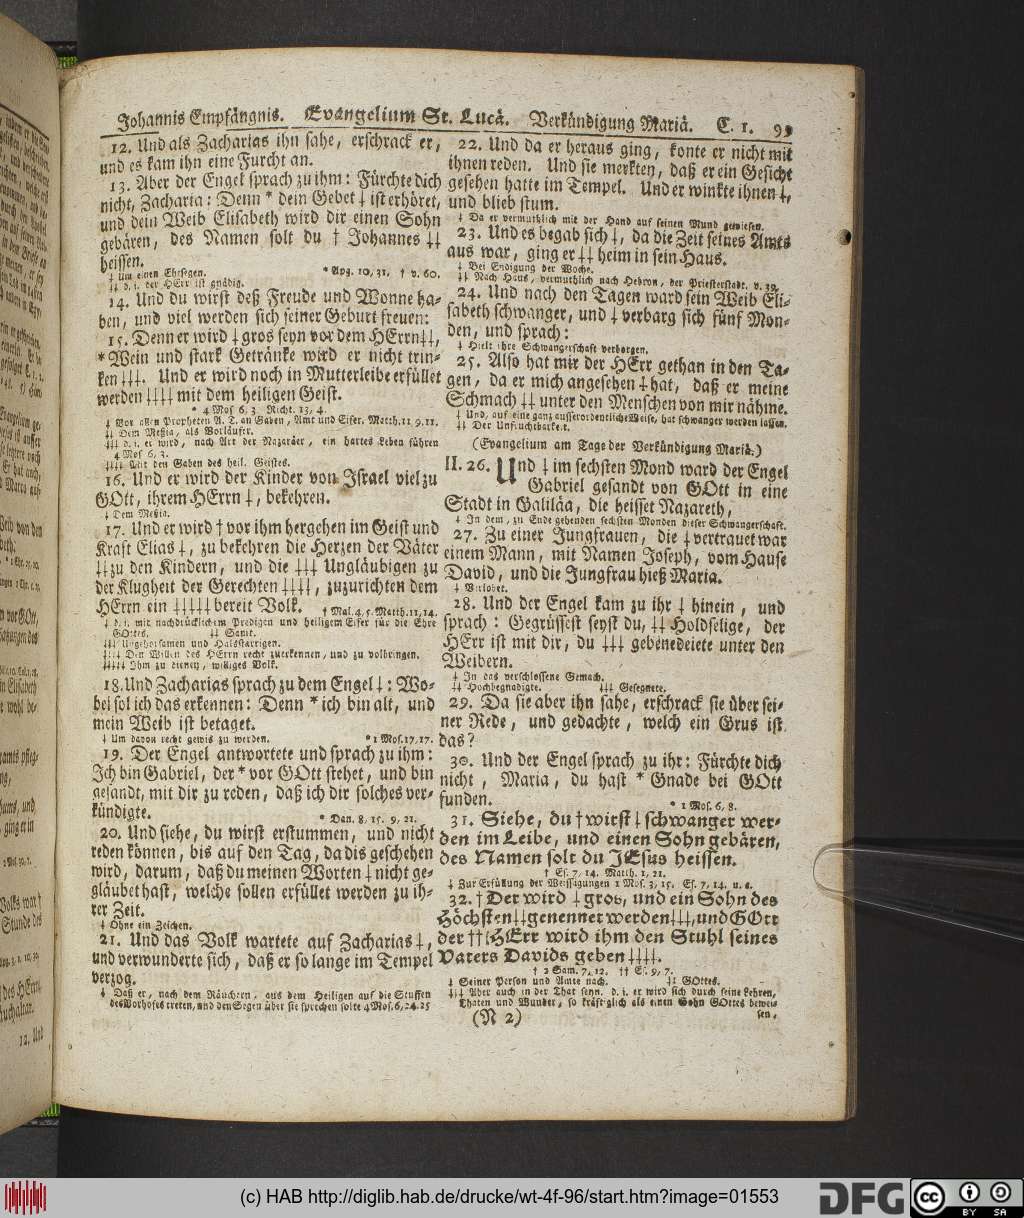 Johannis Empfängnis. Evangelium St. Lucä. Verkündigung Mariä. C. 1. 99
12. Und als Zacharias ihn sahe, erschrack er,
und es kam ihn eine Furcht an.
13. Aber der Engel sprach zu ihm: Fürchte dich
nicht, Zacharia: Denn * dein Gebet ‡ ist erhöret,
und dein Weib Elisabeth wird dir einen Sohn
gebären, des Namen solt du † Johannes ‡‡
heissen. * Apg. 10, 31. † v. 60.
‡ Um einen Ehesegen.
‡‡ d. i. der HErr ist gnädig.
14. Und du wirst deß Freude und Wonne ha-
ben, und viel werden sich seiner Geburt freuen:
15. Denn er wird ‡ gros seyn vor dem HErrn ‡‡,
* Wein und stark Getränke wird er nicht trin-
ken ‡‡‡. Und er wird noch in Mutterleibe erfüllet
werden ‡‡‡‡ mit dem heiligen Geist.
* 4 Mos 6, 3. Richt. 13, 4.
‡ Vor allen Propheten A. T. an Gaben, Amt und Eifer. Matth. 11, 9. 11.
‡‡ Dem Meßia, als Vorläufer.
‡‡‡ d. i. er wird, nach Art der Nazaräer, ein hartes Leben führen
4 Mos 6, 3.
‡‡‡‡ Mit den Gaben des heil. Geistes.
16. Und er wird der Kinder von Israel viel zu
GOtt, ihrem HErrn ‡, bekehren.
‡ Dem Meßia.
17. Und er wird † vor ihm hergehen im Geist und
Kraft Elias ‡, zu bekehren die Herzen der Väter
‡‡ zu den Kindern, und die ‡‡‡ Ungläubigen zu
der Klugheit der Gerechten ‡‡‡‡, zuzurichten dem
HErrn ein ‡‡‡‡‡ bereit Volk. † Mal. 4, 5. Matth. 11, 14.
‡ d. i. mit nachdrücklichem Predigen und heiligem Eifer für die Ehre
GOttes. ‡‡ Samt.
‡‡‡ Ungehorsamen und Halsstarrigen.
‡‡‡‡ Den Willen des HErrn recht zuerkennen, und zu vollbringen.
‡‡‡‡‡ Ihm zu dienen, williges Volk.
18. Und Zacharias sprach zu dem Engel ‡: Wo-
bei sol ich das erkennen: Denn * ich bin alt, und
mein Weib ist betaget.
‡ Um davon recht gewis zu werden. * 1 Mos. 17, 17.
19. Der Engel antwortete und sprach zu ihm:
Ich bin Gabriel, der * vor GOtt stehet, und bin
gesandt, mit dir zu reden, daß ich dir solches ver-
kündigte. * Dan. 8, 15. 9, 21.
20. Und siehe, du wirst erstummen, und nicht
reden können, bis auf den Tag, da dis geschehen
wird, darum, daß du meinen Worten ‡ nicht ge-
gläubet hast, welche sollen erfüllet werden zu ih-
rer Zeit.
‡ Ohne ein Zeichen.
21. Und das Volk wartete auf Zacharias ‡,
und verwunderte sich, daß er so lange im Tempel
verzog.
‡ Daß er, nach dem Räuchern, aus dem Heiligen auf die Stuffen
des Vorhofes treten, und den Segen über sie sprechen solte 4 Mos. 6, 24. 25
22. Und da er heraus ging, konte er nicht mit
ihnen reden. Und sie merkten, daß er ein Gesicht
gesehen hatte im Tempel. Und er winkte ihnen ‡,
und blieb stum.
‡ Da er vermuthlich mit der Hand auf seinen Mund gewiesen.
23. Und es begab sich ‡, da die Zeit seines Amts
aus war, ging er ‡‡ heim in sein Haus.
‡ Bei Endigung der Woche.
‡‡ Nach Haus, vermuthlich nach Hebron, der Priesterstadt. v. 39.
24. Und nach den Tagen ward sein Weib Eli-
sabeth schwanger, und ‡ verbarg sich fünf Mon-
den, und sprach:
‡ Hielt ihre Schwangerschaft verborgen.
25. Also hat mir der HErr gethan in den Ta-
gen, da er mich angesehen ‡ hat, daß er meine
Schmach ‡‡ unter den Menschen von mir nähme.
‡ Und, auf eine ganz ausserordentliche Weise, hat schwanger werden lassen.
‡‡ Der Unfruchtbarkeit.
(Evangelium am Tage der Verkündigung Mariä.)
II. 26. Und ‡ im sechsten Mond ward der Engel
Gabriel gesandt von GOtt in eine
Stadt in Galiläa, die heisset Nazareth,
‡ In dem, zu Ende gehenden sechsten Monden dieser Schwangerschaft.
27. Zu einer Jungfrauen, die ‡ vertrauet war
einem Mann, mit Namen Joseph, vom Hause
David, und die Jungfrau hieß Maria.
‡ Verlobet.
28. Und der Engel kam zu ihr ‡ hinein, und
sprach: Gegrüssest seyst du, ‡‡ Holdselige, der
HErr ist mit dir, du ‡‡‡ gebenedeiete unter den
Weibern.
‡ In das verschlossene Gemach.
‡‡ Hochbegnadigte. ‡‡‡ Gesegnete.
29. Da sie aber ihn sahe, erschrack sie über sei-
ner Rede, und gedachte, welch ein Grus ist
das?
30. Und der Engel sprach zu ihr: Fürchte dich
nicht, Maria, du hast * Gnade bei GOtt
funden. * 1 Mos. 6, 8.
31. Siehe, du † wirst ‡ schwanger wer-
den im Leibe, und einen Sohn gebären,
des Namen solt du JEsus heissen.
† Es. 7, 14. Matth. 1, 21.
‡ Zur Erfüllung der Weissagungen 1 Mos. 3, 15. Es. 7, 14. u. a.
32. † Der wird ‡ gros, und ein Sohn des
Höchsten ‡‡ genennet werden ‡‡‡, und GOtt
der †† HErr wird ihm den Stuhl seines
Vaters Davids geben ‡‡‡‡.
† 2 Sam. 7, 12. †† Es. 9, 7.
‡ Seiner Person und Amte nach. ‡‡ GOttes.
‡‡‡ Aber auch in der That seyn. d. i. er wird sich durch seine Lehren,
Thaten und Wunder, so kräftiglich als einen Sohn GOttes bewei-
sen.
(N 2)
12. Und
(c) HAB http://diglib.hab.de/drucke/wt-4f-96/start.htm?image=01553
DFG
cc BY SA